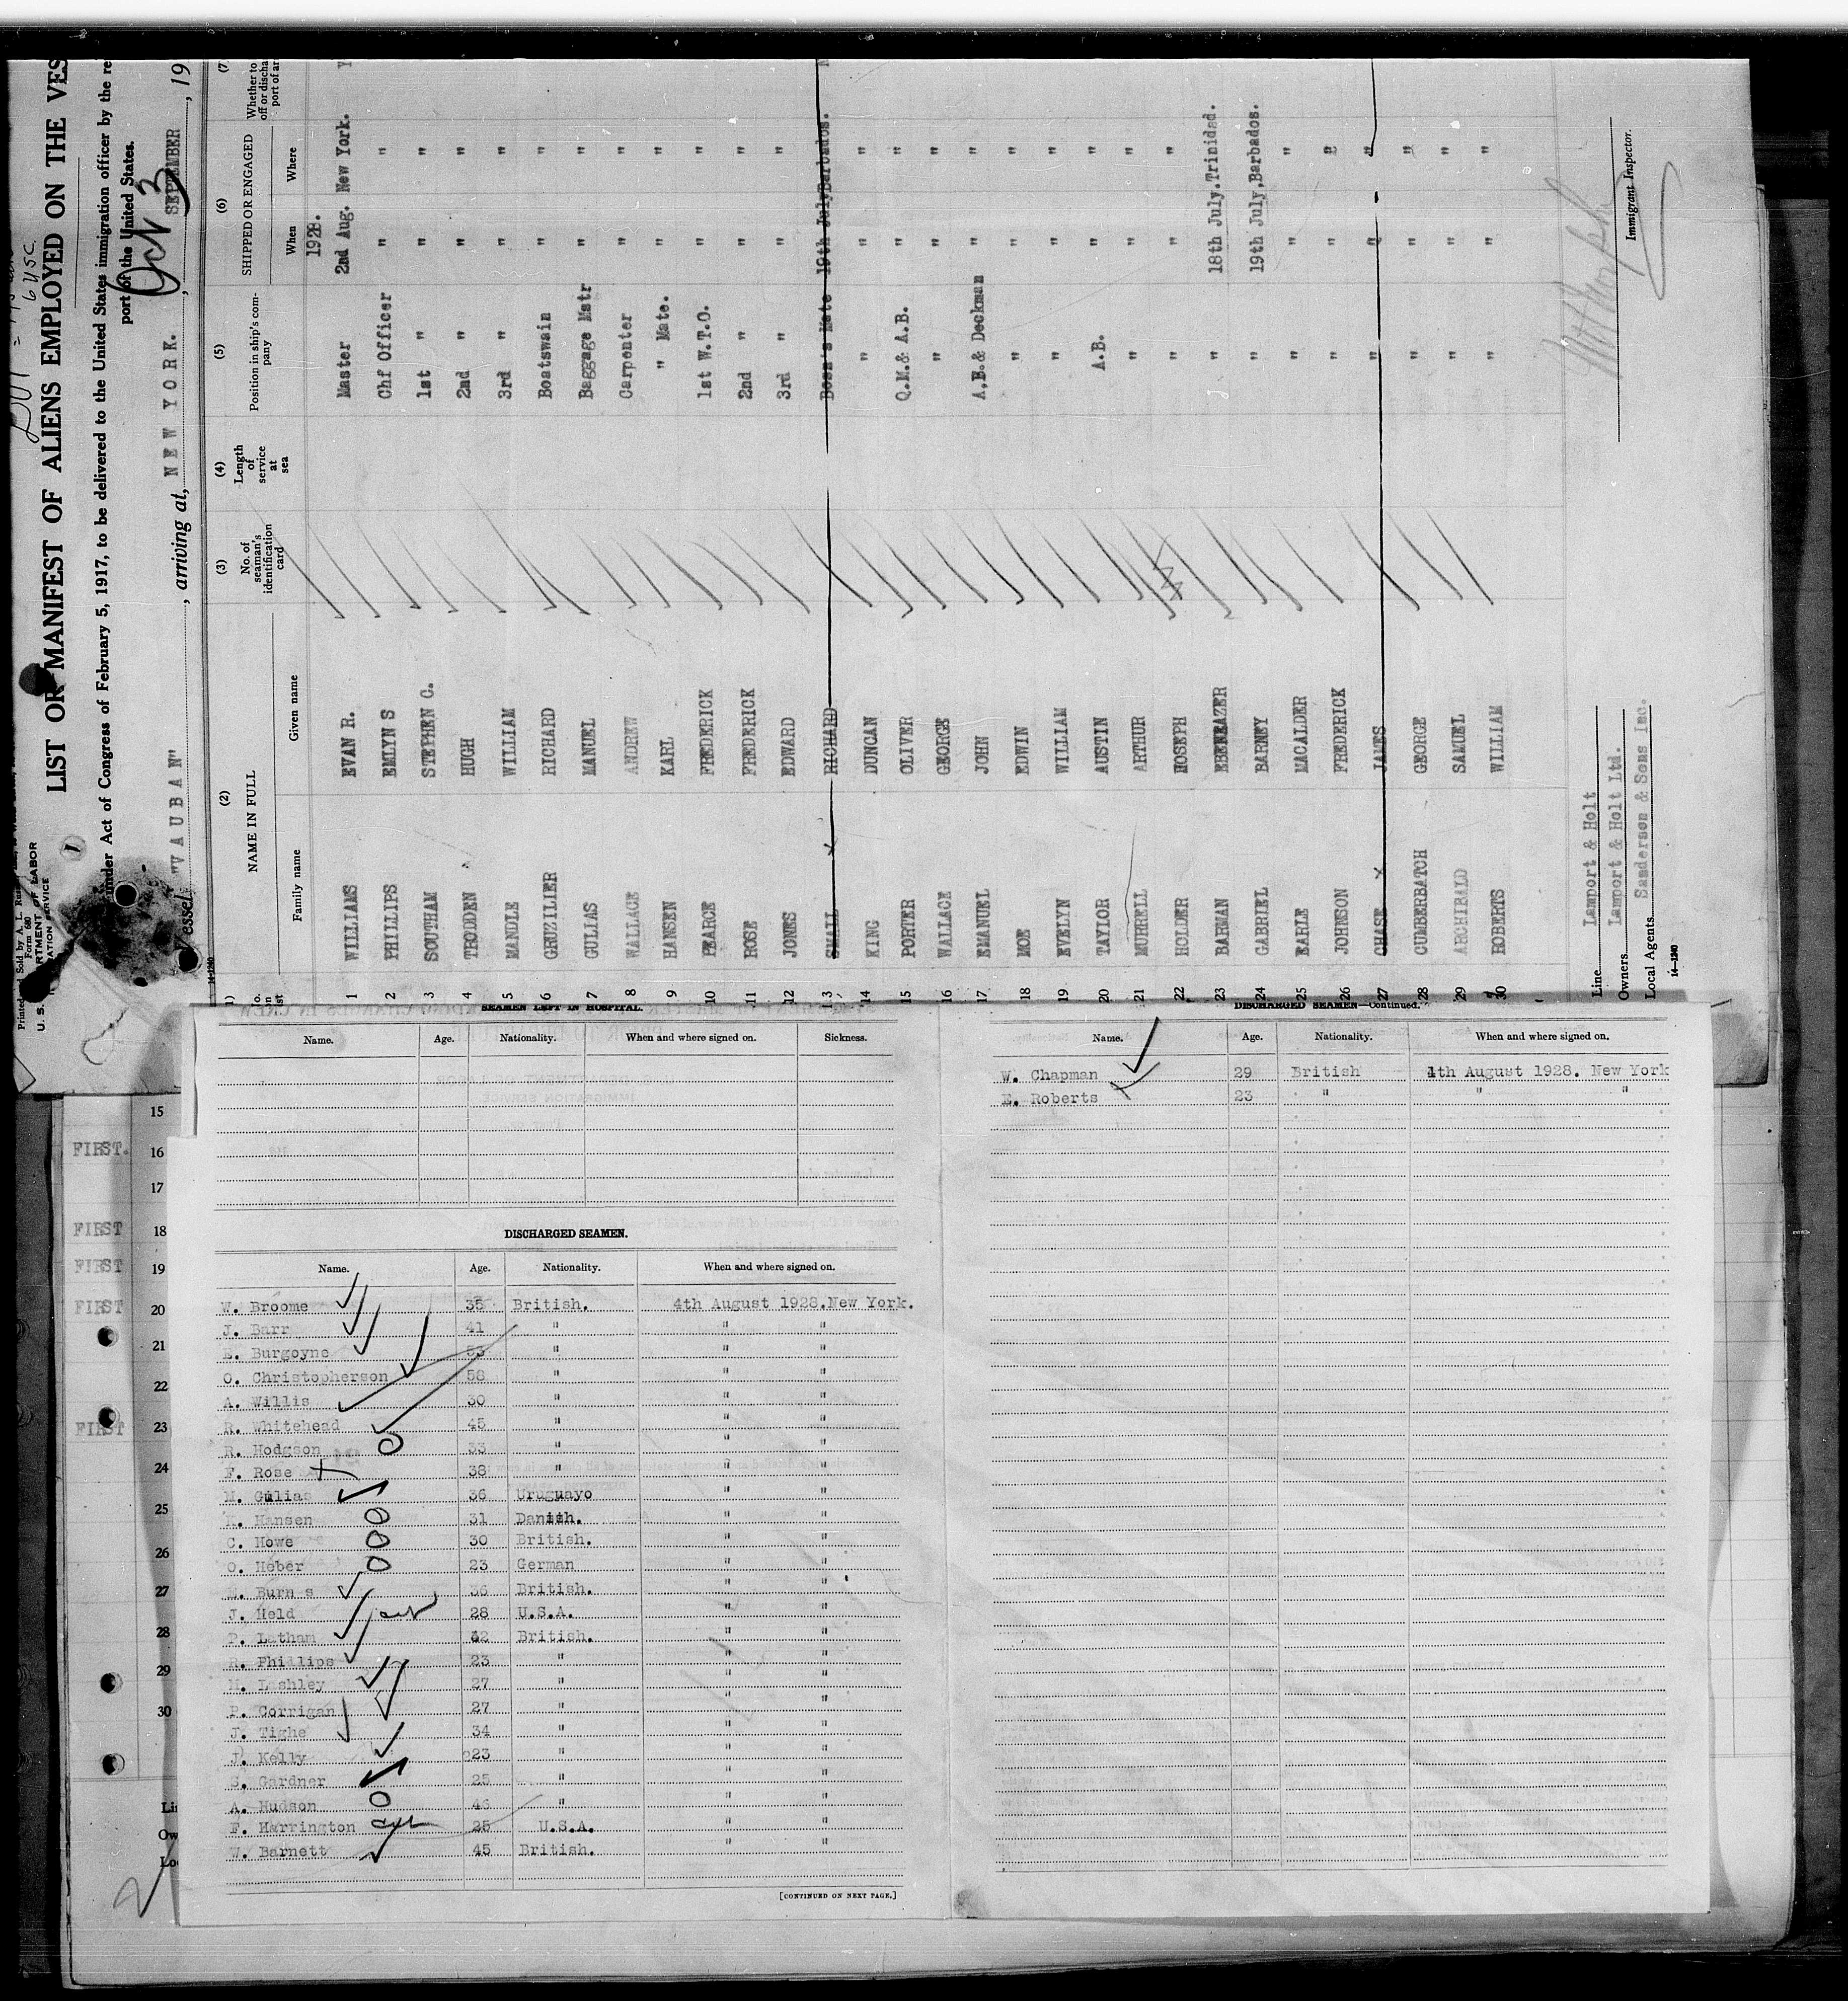 LIST OR MANIFEST OF ALIENS EMPLOYED ON THE VES
under Act of Congress of February 5, 1917, to be delivered to the United States immigration officer by the re
port of the United States.
Vessel "VAUBAN", arriving at, NEW YORK. , SEPTEMBER , 19
Oct 3
Form 680
U. S. DEPARTMENT OF LABOR
14-1240
(2) (3) (4) (5) (6) (7)
NAME IN FULL No. of seaman's identification card Length of service at sea Position in ship's company SHIPPED OR ENGAGED
Family name Given name When Where
1928.
1 WILLIAMS EVAN R. Master 2nd Aug. New York. Y
2 PHILLIPS EMLYN S Chf Officer " "
3 SOUTHAM STEPHEN C. 1st " " "
4 TRODDEN HUGH 2nd " " "
5 MANDLE WILLIAM 3rd " " "
6 GRUZILIER RICHARD Boatswain " "
7 GULIAS MANUEL Baggage Mstr " "
8 WALLACE ANDREW Carpenter " "
9 HANSEN KARL " Mate. " "
10 PEARCE FREDERICK 1st W.T.O. " "
11 ROSE FREDERICK 2nd " " "
12 JONES EDWARD 3rd " " "
13 SMALL RICHARD Bosn's Mate 19th July Barbados. N
14 KING DUNCAN " " "
15 PORTER OLIVER Q.M.& A.B. " "
16 WALLACE GEORGE " " "
17 EMANUEL JOHN A.B.& Deckman " "
18 MOE EDWIN " " "
19 EVELYN WILLIAM " " "
20 TAYLOR AUSTIN A.B. " "
21 MURRELL ARTHUR " " "
22 HOLDER HOSEPH " " "
23 BARMAN EBENEAZER " 18th July.Trinidad.
24 GABRIEL BARNEY " 19th July,Barbados.
25 EARLE MACALDER " " "
26 JOHNSON FREDERICK " " "
27 CHASE JAMES " " "
28 CUMBERBATCH GEORGE " " "
29 ARCHIBALD SAMUEL " " "
30 ROBERTS WILLIAM " " "
Line Lamport & Holt
Owners Lamport & Holt Ltd.
Local Agents Sanderson & Sons Inc.
14-1240
Immigrant Inspector.
SEAMEN LEFT IN HOSPITAL.
Name. Age. Nationality. When and where signed on. Sickness.
DISCHARGED SEAMEN.
Name. Age. Nationality. When and where signed on.
W. Broome 35 British. 4th August 1928.New York.
J. Barr 41 " " "
E. Burgoyne 53 " " "
O. Christopherson 58 " " "
A. Willis 30 " " "
R. Whitehead 45 " " "
R. Hodgson 33 " " "
F. Rose 38 " " "
M. Gulias 36 Uruguayo " "
K. Hansen 31 Danish. " "
C. Howe 30 British. " "
O. Heber 23 German " "
E. Burn s 36 British. " "
J. Held 28 U.S.A. " "
P. Latham 42 British. " "
R. Phillips 23 " " "
H. Lashley 27 " " "
P. Corrigan 27 " " "
J. Tighe 34 " " "
J. Kelly 23 " " "
S. Gardner 25 " " "
A. Hudson 46 " " "
F. Harrington 25 U.S.A. " "
W. Barnett 45 British. " "
[CONTINUED ON NEXT PAGE.]
DISCHARGED SEAMEN—Continued.
Name. Age. Nationality. When and where signed on.
W. Chapman 29 British 4th August 1928. New York
E. Roberts 23 " " "
15
FIRST. 16
17
FIRST 18
FIRST 19
FIRST 20
21
22
FIRST 23
24
25
26
27
28
29
30
Lin
Ow
Lo
2